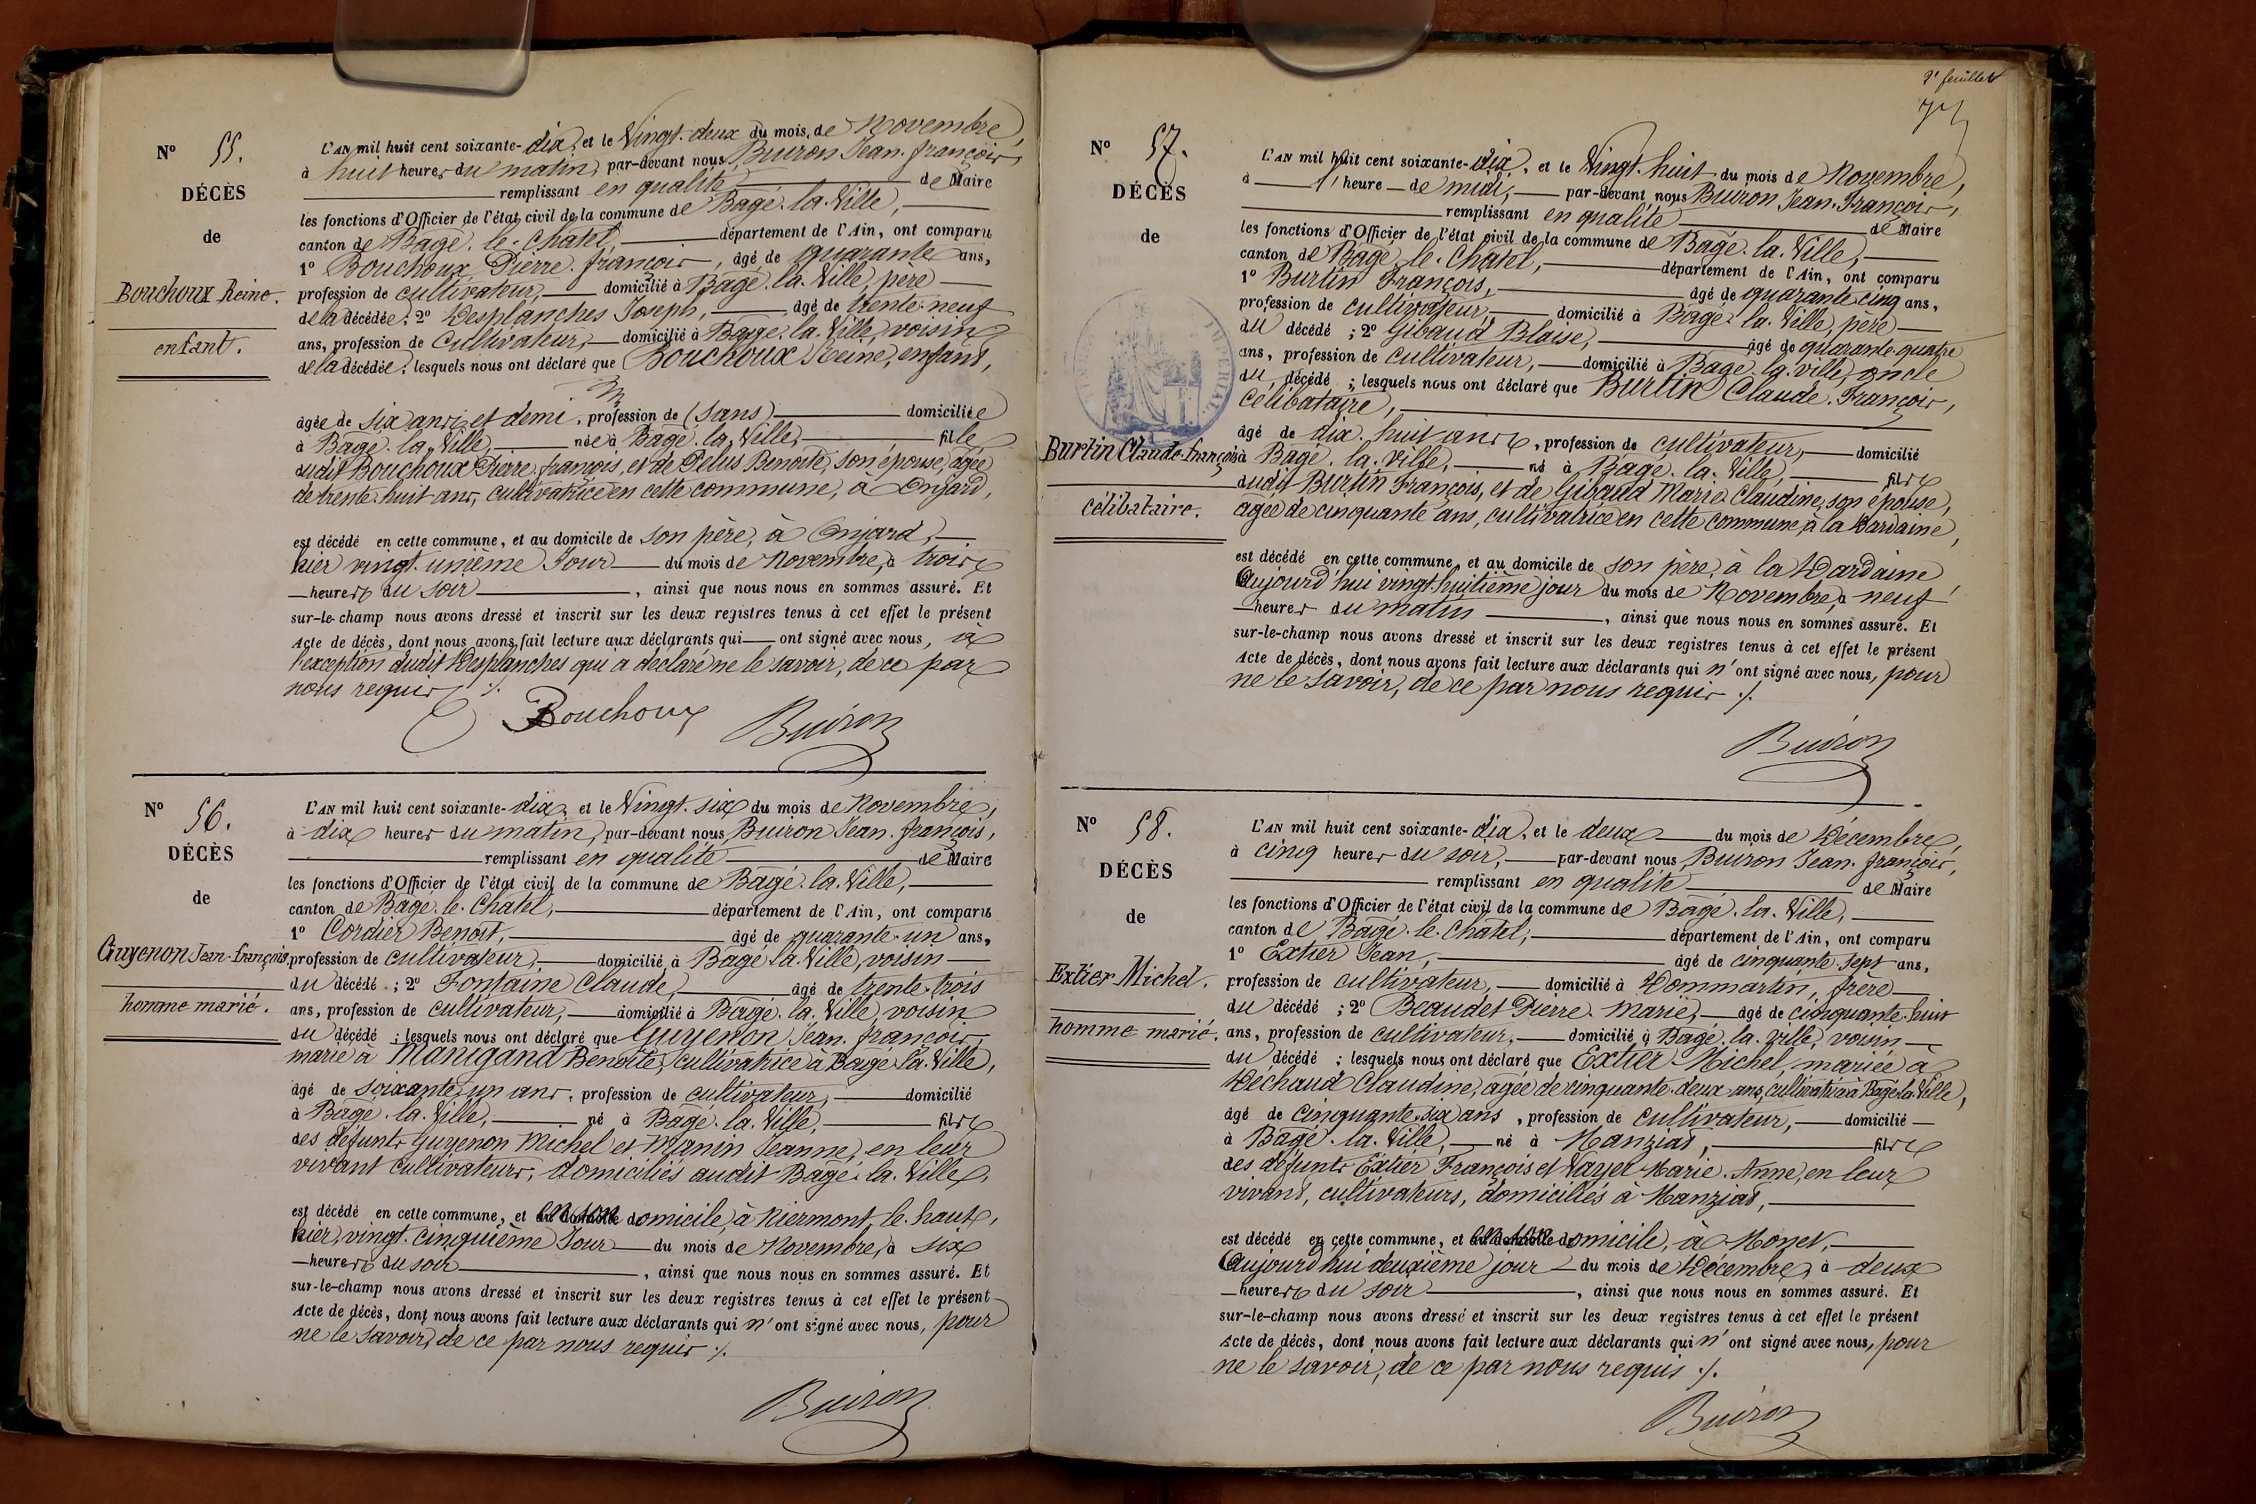 Nº 55.
DÉCÈS
de
Bouchoux Reine.
enfant.
L'AN mil huit cent soixante-dix, et le Vingt-deux du mois de Novembre,
à huit heures du matin, par-devant nous Buiron Jean-françois,
remplissant en qualité de Maire
les fonctions d'Officier de l'état civil de la commune de Bagé-la-Ville,
canton de Bagé-le-Chatel, département de l'Ain, ont comparu
1º Bouchoux Pierre-françois, âgé de quarante ans,
profession de cultivateur, domicilié à Bagé-la-Ville, père
de la décédée; 2º Desplanches Joseph, âgé de trente-neuf
ans, profession de Cultivateur, domicilié à Bagé-la-Ville, voisin
de la décédée; lesquels nous ont déclaré que Bouchoux Reine, enfant,
âgée de six ans et demi, profession de (sans) domiciliée
à Bagé-la-Ville, née à Bagé-la-Ville, fille
dudit Bouchoux Pierre-françois, et de Pelus Benoite, son épouse, âgée
de trente-huit ans, cultivatrice en cette commune, à Onjard,
est décédé en cette commune, et au domicile de son père, à Onjard,
hier vingt-unième Jour du mois de Novembre, à trois
heures du soir, ainsi que nous nous en sommes assuré. Et
sur-le-champ nous avons dressé et inscrit sur les deux registres tenus à cet effet le présent
Acte de décès, dont nous avons fait lecture aux déclarants qui ont signé avec nous, à
l'exception dudit Desplanches qui a déclaré ne le savoir, de ce par
nous requis ./.
Bouchoux Buiron
Nº 56.
DÉCÈS
de
Guyenon Jean-françois.
homme marié.
L'AN mil huit cent soixante-dix, et le Vingt-six du mois de Novembre,
à dix heures du matin, par-devant nous Buiron Jean-françois,
remplissant en qualité de Maire
les fonctions d'Officier de l'état civil de la commune de Bagé-la-Ville,
canton de Bagé-le-Chatel, département de l'Ain, ont comparu
1º Cordier Benoit, âgé de quarante-un ans,
profession de cultivateur, domicilié à Bagé-la-Ville, voisin
du décédé; 2º Fontaine Claude, âgé de trente-trois
ans, profession de cultivateur, domicilié à Bagé-la-Ville, voisin
du décédé; lesquels nous ont déclaré que Guyenon Jean-françois
marié à Manigand Benoite, cultivatrice à Bagé-la-Ville,
âgé de soixante-un ans, profession de cultivateur, domicilié
à Bagé-la-Ville, né à Bagé-la-Ville, fils
des défunts Guyenon Michel et Manin Jeanne, en leur
vivant cultivateurs, domiciliés audit Bagé-la-Ville,
est décédé en cette commune, et en son domicile, à Niermont-le-haut,
hier, vingt-cinquième Jour du mois de Novembre, à six
heures du soir, ainsi que nous nous en sommes assuré. Et
sur-le-champ nous avons dressé et inscrit sur les deux registres tenus à cet effet le présent
Acte de décès, dont nous avons fait lecture aux déclarants qui n'ont signé avec nous, pour
ne le savoir, de ce par nous requis ./.
Buiron
2e feuillet
Nº 57.
DÉCÈS
de
Burtin Claude-françois
célibataire.
L'AN mil huit cent soixante-dix, et le Vingt-huit du mois de Novembre,
à 1 heure de midi, par-devant nous Buiron Jean-François,
remplissant en qualité de Maire
les fonctions d'Officier de l'état civil de la commune de Bagé-la-Ville,
canton de Bagé-le-Chatel, département de l'Ain, ont comparu
1º Burtin François, âgé de quarante-cinq ans,
profession de cultivateur, domicilié à Bagé-la-Ville, père
du décédé; 2º Gibaud Blaise, âgé de quarante-quatre
ans, profession de cultivateur, domicilié à Bagé-la-ville, oncle
du décédé; lesquels nous ont déclaré que Burtin Claude-François,
célibataire,
âgé de dix-huit ans, profession de cultivateur, domicilié
à Bagé-la-Ville, né à Bagé-la-Ville, fils
dudit Burtin François, et de Gibaud Marie-Claudine, son épouse,
âgée de cinquante ans, cultivatrice en cette commune, à la Dardaine,
est décédé en cette commune, et au domicile de son père, à la Dardaine
Aujourd'hui vingt-huitième jour du mois de Novembre, à neuf
heures du matin, ainsi que nous nous en sommes assuré. Et
sur-le-champ nous avons dressé et inscrit sur les deux registres tenus à cet effet le présent
Acte de décès, dont nous avons fait lecture aux déclarants qui n'ont signé avec nous, pour
ne le savoir, de ce par nous requis ./.
Buiron
Nº 58.
DÉCÈS
de
Extier Michel.
homme marié.
L'AN mil huit cent soixante-dix, et le deux du mois de Décembre,
à cinq heures du soir, par-devant nous Buiron Jean-françois,
remplissant en qualité de Maire
les fonctions d'Officier de l'état civil de la commune de Bagé-la-Ville,
canton de Bagé-le-Chatel, département de l'Ain, ont comparu
1º Extier Jean, âgé de cinquante-sept ans,
profession de cultivateur, domicilié à Dommartin, frère
du décédé; 2º Beaudet Pierre-Marie, âgé de cinquante-huit
ans, profession de cultivateur, domicilié à Bagé-la-ville, voisin
du décédé; lesquels nous ont déclaré que Extier Michel, mariée à
Déchaud Claudine, âgée de cinquante-deux ans, cultivatice à Bagé-la-Ville,
âgé de cinquante-six ans, profession de cultivateur, domicilié
à Bagé-la-Ville, né à Manziat, fils
des défunts Extier François et Vayer Marie-Anne, en leur
vivant, cultivateurs, domiciliés à Manziat,
est décédé en cette commune, et en son domicile, à Monet,
Aujourd'hui deuxième jour du mois de Décembre, à deux
heures du soir, ainsi que nous nous en sommes assuré. Et
sur-le-champ nous avons dressé et inscrit sur les deux registres tenus à cet effet le présent
Acte de décès, dont nous avons fait lecture aux déclarants qui n'ont signé avec nous, pour
ne le savoir, de ce par nous requis ./.
Buiron